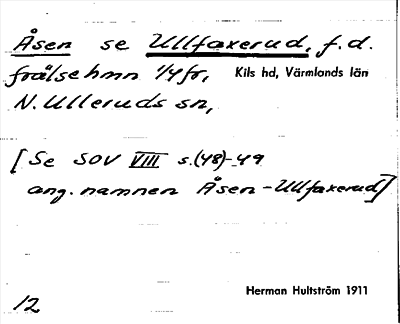 Åsen se Ullfaxerud, f.d.
frälsehmn 1/4 fr, Kils hd, Värmlands län
N. Ulleruds sn,
[Se SOV VIII s.(48)-49
ang. namnen Åsen-Ullfaxerud]
Herman Hultström 1911
12